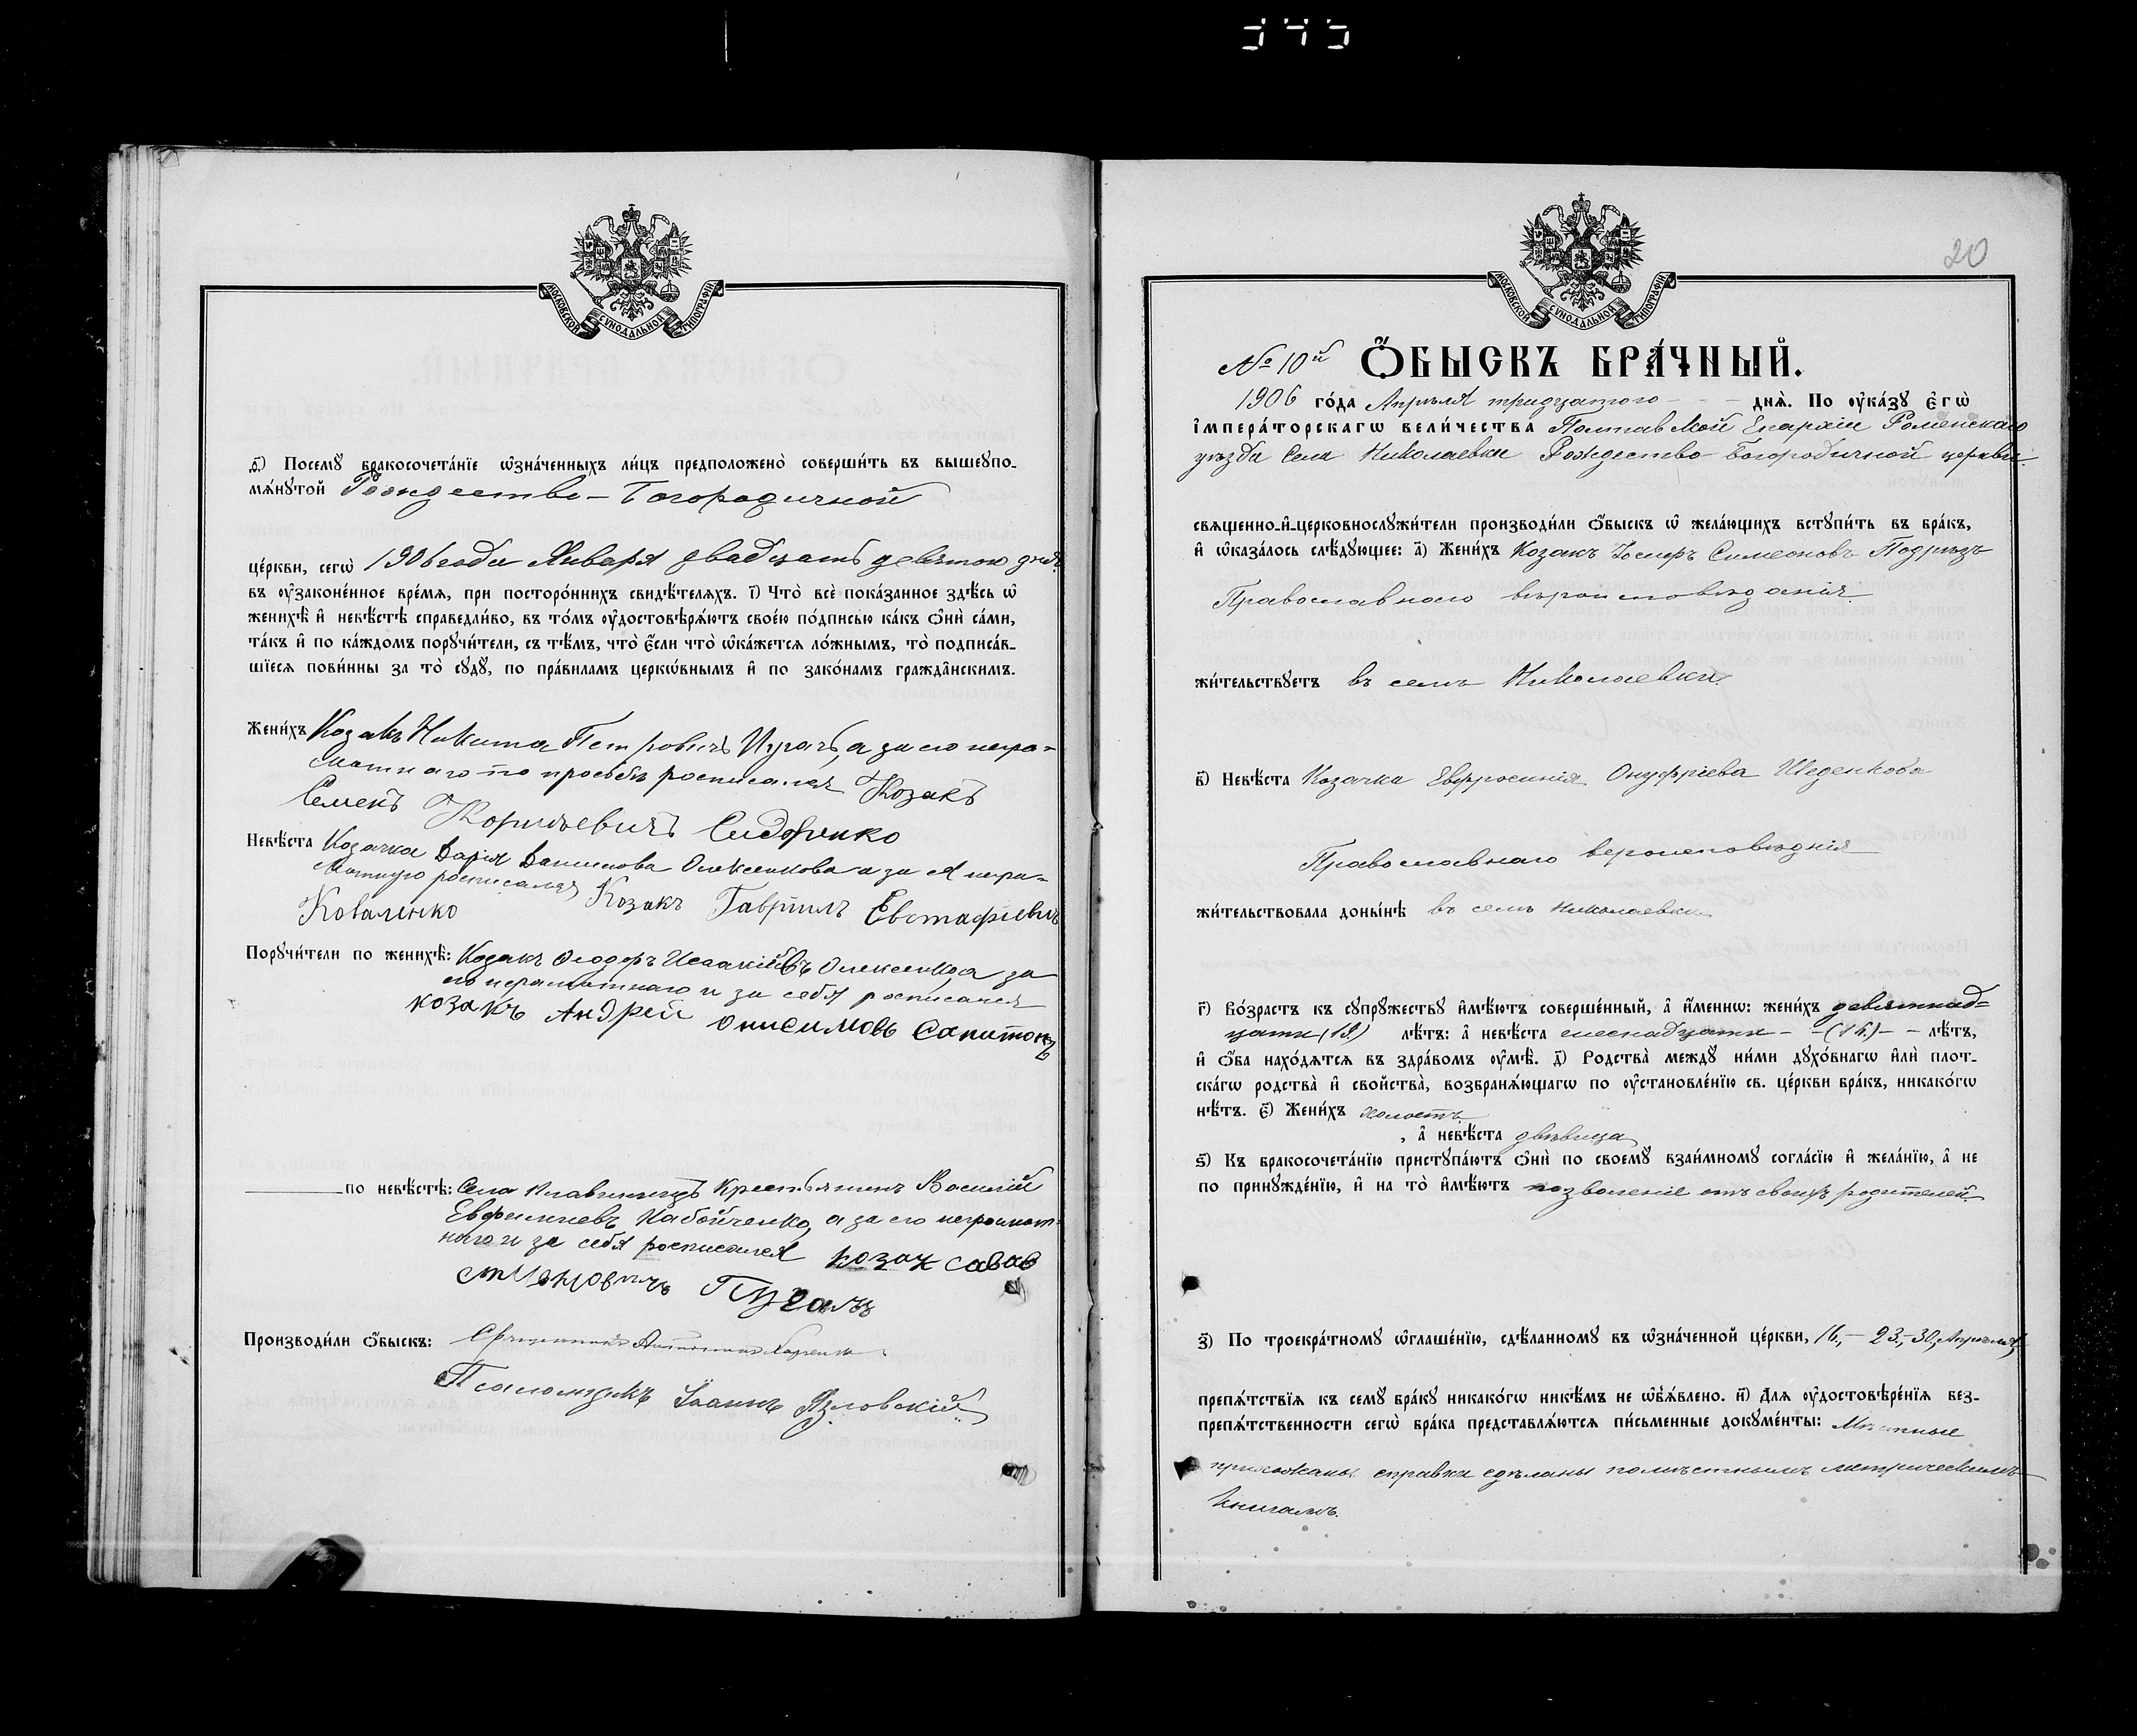 МОСКОВСКОЙ СѴНОДАЛЬНОЙ ТИПОГРАФІИ
д҃) Посемꙋ бракосочета́нїе ѡ҆зна́ченныхъ ли́цъ предположено̀ соверши́ть въ вышеꙋпо-
мѧ́нꙋтой Рождество-Богородичной
це́ркви, сегѡ̀ 1906 года Января двадцать девятого дня
въ ᲂу҆зако́ненное вре́мѧ, при посторо́ннихъ свидѣ́телѧхъ. і҃) Что̀ всѐ пока́занное здѣ́сь ѡ҆
женихѣ̀ и҆ невѣ́стѣ справедли́во, въ то́мъ ᲂу҆достовѣрѧ́ютъ свое́ю по́дписью ка́къ ѻ҆нѝ са́ми,
та́къ и҆ по ка́ждомъ порꙋчи́тели, съ тѣ́мъ, что̀ є҆́сли что̀ ѡ҆ка́жетсѧ ло́жнымъ, то̀ подписа́в-
шїесѧ пови́нны за то̀ сꙋдꙋ̀, по пра́виламъ церкѡ́внымъ и҆ по зако́намъ гражда̑нскимъ.
Жени́хъ Козакъ Никита Петровичъ а за его негра-
мотнаго по просьбѣ росписался Козакъ
Семенъ Сидоренко
Невѣ́ста Козачка Дарія Олексенкова а за я негра-
мотную росписался Козакъ Гавріилъ Евстафіевичъ
Коваленко
Порꙋчи́тели по женихѣ̀: Козакъ Ѳеодоръ Исаакіевъ Олексенко, а за
его неграмотнаго и за себя росписался
козакъ Андрей Онисимовъ
по невѣ́стѣ: Села крестьянинъ Василій
Евфиміевъ а за его неграмот-
наго и за себя росписался козак савва
Произво́дили ѻ҆́быскъ: Священникъ
Псаломщикъ Іоаннъ Язловскій
20
МОСКОВСКОЙ СѴНОДАЛЬНОЙ ТИПОГРАФІИ
№ 10й Ѻ҆́БЫСКЪ БРА́ЧНЫЙ.
1906 го́да Апрѣля тридцатого днѧ̀. По ᲂу҆ка́зꙋ є҆гѡ̀
і҆мпера́торскагѡ вели́чества Полтавской Епархіи Роменскаго
уѣзда села Николаевки Рождество-Богородичной церкви
свѧщенно-и҆-церковнослꙋжи́тели производи́ли ѻ҆́быскъ ѡ҆ жела́ющихъ встꙋпи́ть въ бра́къ,
и҆ ѡ҆каза́лось слѣ́дꙋющее: а҃) Жени́хъ Козакъ Іосифъ Симеоновъ Подрѣзъ
Православнаго вѣроисповѣданія
жи́тельствꙋетъ въ селѣ Николаевки
в҃) Невѣ́ста Козачка Евфросинія Онуфріева Шеденкова
Православнаго вероисповѣднія
жи́тельствовала доны́нѣ въ селѣ Николаевки
г҃) Во́зрастъ къ сꙋпрꙋ́жествꙋ и҆мѣ́ютъ соверше́нный, а҆ и҆́меннѡ: жени́хъ девятнад-
цати (19) лѣ́тъ: а҆ невѣ́ста шеснадцати - - (16) - - лѣ́тъ,
и҆ ѻ҆́ба нахо́дѧтсѧ въ здра́вомъ ᲂу҆мѣ̀. д҃) Родства̀ междꙋ ни́ми дꙋхо́внагѡ и҆лѝ плот-
ска́гѡ родства̀ и҆ сво́йства̀, возбранѧ́ющагѡ по ᲂу҆становле́нїю св. це́ркви бра́къ, никако́гѡ
нѣ́тъ. є҃) Жени́хъ холостъ
, а҆ невѣ́ста дѣвица
ѕ҃) Къ бракосочета́нїю пристꙋпа́ютъ ѻ҆нѝ по своемꙋ̀ взаи́мномꙋ согла́сїю и҆ жела́нїю, а҆ не
по принꙋжде́нїю, и҆ на то̀ и҆мѣ́ютъ позволеніе отъ своихъ родителей
з҃) По троекра́тномꙋ ѡ҆глаше́нїю, сдѣ́ланномꙋ въ ѡ҆зна́ченной це́ркви, 16,- 23,-30, Апрѣля,
препѧ́тствїѧ къ семꙋ̀ бра́кꙋ никако́гѡ никѣ́мъ не ѡ҆б̾ѧ́влено. и҃) Длѧ̀ ᲂу҆достовѣре́нїѧ без-
препѧ́тственности сегѡ̀ бра́ка представлѧ́ютсѧ пи́сьменные докꙋме́нты: Мѣстные
прихожаны справки сдѣланы по мѣстнымъ метрическимъ
книгамъ.